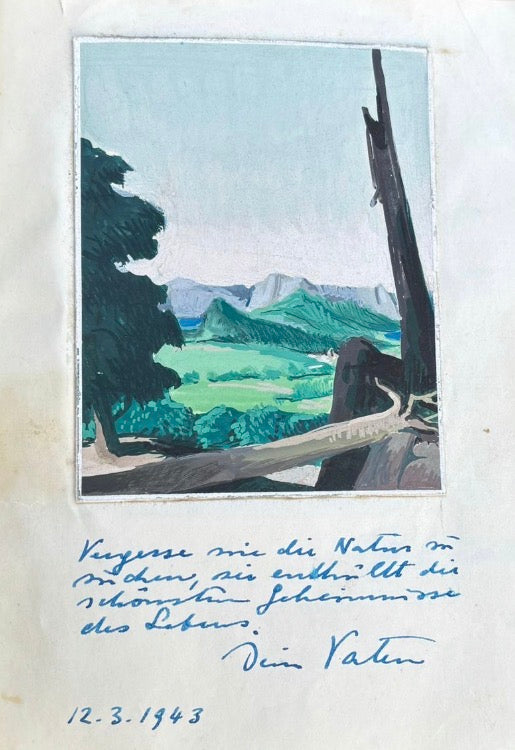 Vergesse nie die Natur zu
suchen, sie enthüllt die
schönsten Geheimnisse
des Lebens.
Dein Vater
12.3.1943